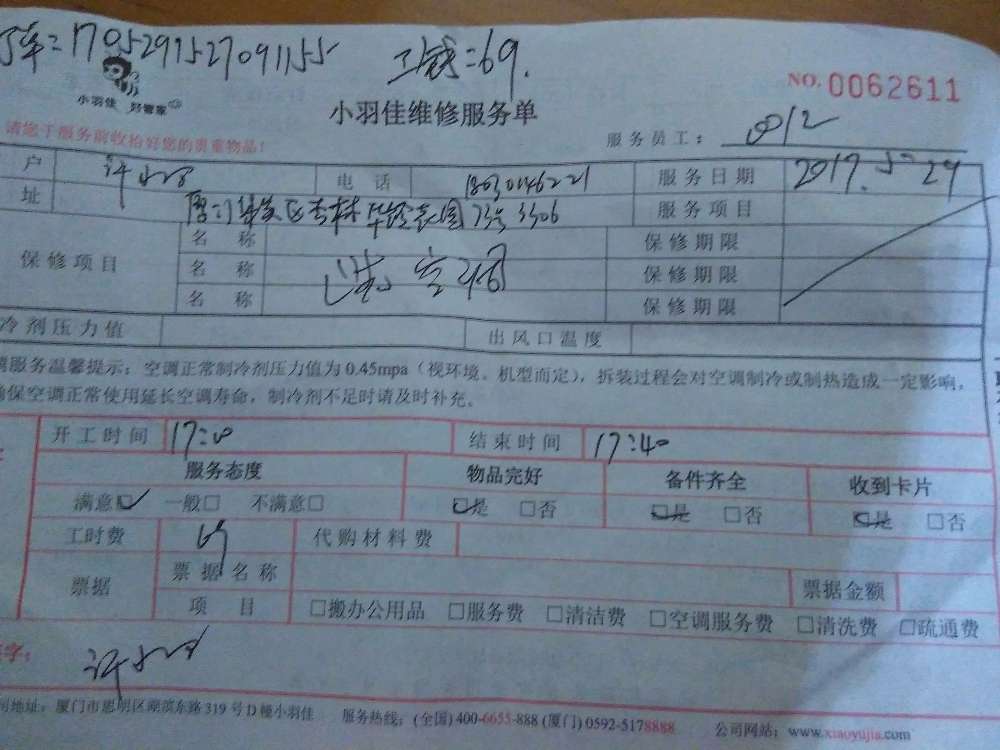 1705291527091155 工钱:69.
NO.0062611
小羽佳 好管家
小羽佳维修服务单
请您于服务前收拾好您的贵重物品!
服务员工: 0012
户 电话 18030146221 服务日期 2017.5.29
址 73号3306 服务项目
保修项目 名称 洗空调 保修期限
名称 保修期限
名称 保修期限
冷剂压力值 出风口温度
服务温馨提示:空调正常制冷剂压力值为0.45mpa(视环境、机型而定),拆装过程会对空调制冷或制热造成一定影响,
保空调正常使用延长空调寿命,制冷剂不足时请及时补充。
开工时间 17:00 结束时间 17:40
服务态度 物品完好 备件齐全 收到卡片
满意☑ 一般□ 不满意□ ☑是 □否 ☑是 □否 ☑是 □否
工时费 69 代购材料费
票据 票据名称 票据金额
项目 □搬办公用品 □服务费 □清洁费 □空调服务费 □清洗费 □疏通费
字:
地址:厦门市思明区湖滨东路319号D幢小羽佳 服务热线:(全国)400-6655-888 (厦门)0592-5178888 公司网站:www.xiaoyujia.com